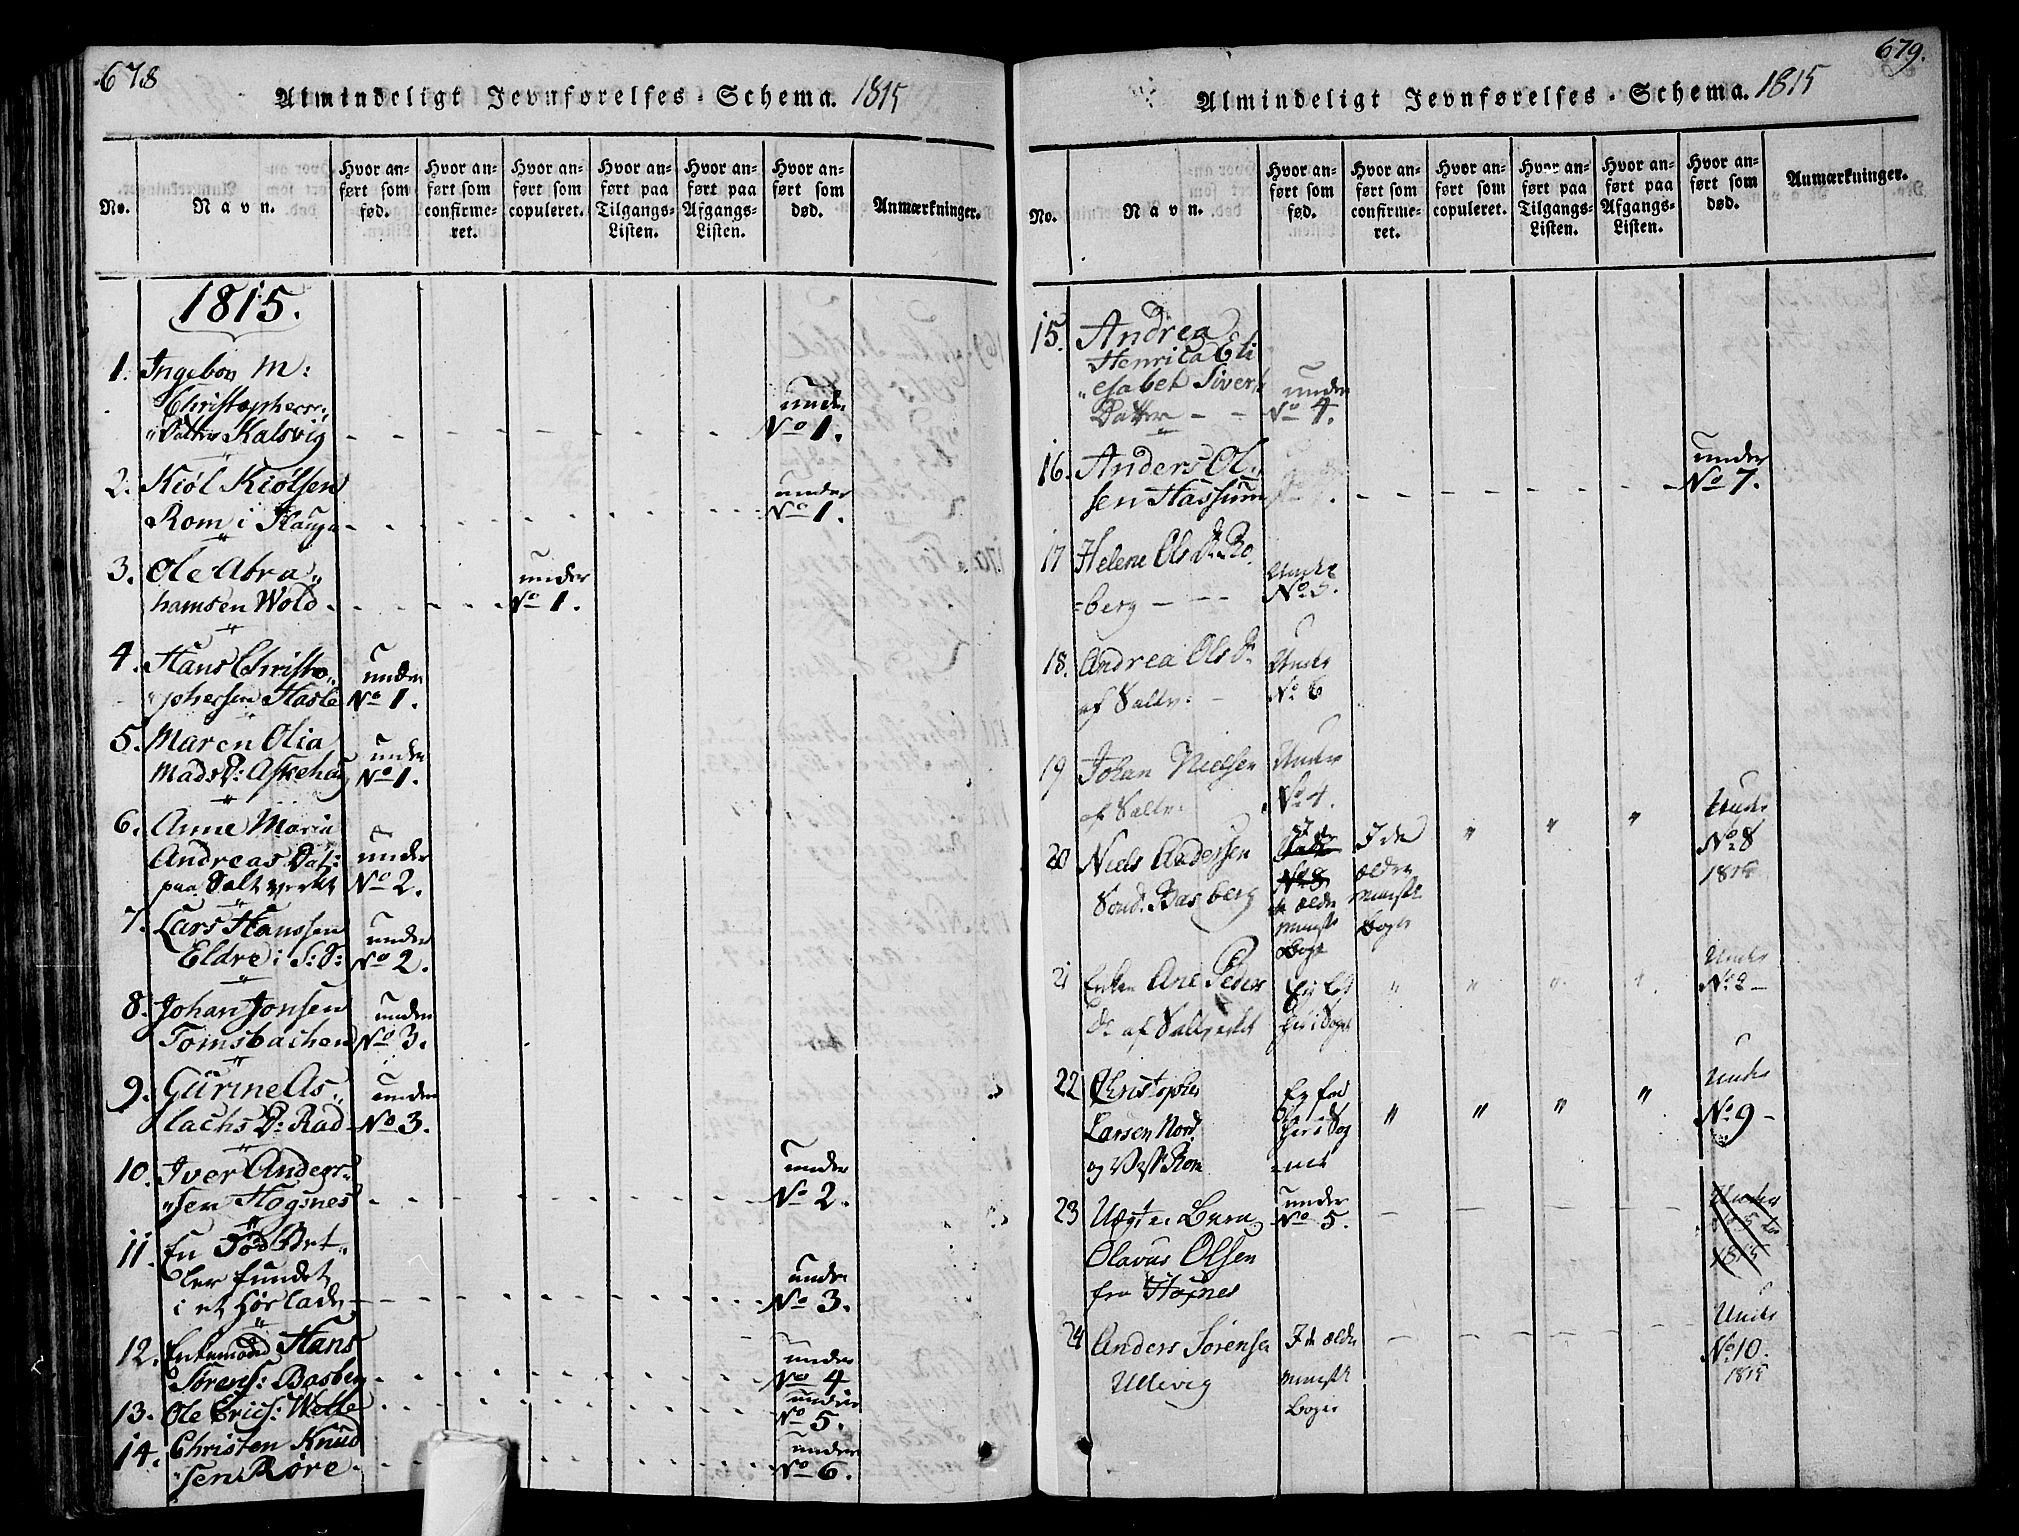 678
Almindeligt Jevnførelses-Schema. 1815
No.
Navn.
Hvor anført som fød.
Hvor anført som confirmeret.
Hvor anført som copuleret.
Hvor anført paa Tilgangs-Listen.
Hvor anført paa Afgangs-Listen.
Hvor anført som død.
Anmærkninger.
1815.
1. Ingebor M:
Christophers:
Datter Kalsvig - - - - - - under No 1.
2. Kiöl Kiölsen
Rom i Hauga - - - - - - under No 1.
3. Ole Abra„
hamsen Wold - - - - under No 1.
4. Hans Christo„
„phersen Hasle under No 1.
5. Maren Olia
Mads D: Askehaug under No 1.
6. Anne Maria
Andreas Dat:
paa Saltverket under No 2.
7. Lars Hanssen
Eldre i S: S: under No 2.
8. Johan Jonsen
Tomsbachen under No 3.
9. Gürine As„
lachs D: Rad under No 3.
10. Iver Anders„
„sen Hogsnes - - - - - - under No 2.
11. En Död
fundet
i et - - - - - - under No 3.
12. Enkemand Hans
Sörens: Basberg - - - - - under No 4
13. Ole Erics: Welle - - - - - under No 5.
14. Christen Knud
„sen Röre - - - - - - under No 6.
679.
Almindeligt Jevnførelses-Schema. 1815
No.
Navn.
Hvor anført som fød.
Hvor anført som confirmeret.
Hvor anført som copuleret.
Hvor anført paa Tilgangs-Listen.
Hvor anført paa Afgangs-Listen.
Hvor anført som død.
Anmærkninger.
15. Andrea
Henrica Eli
„esabet Sivert
Datter - - under No 4.
16. Anders Ol„
sen Hassum - - - - - under No 7.
17 Helene Ols Dr Ro
=berg - - - Under No 5.
18. Andrea Ols Dr
af Saltv: - Under No 6
19 Johan Nielsen
af Saltv: Under No 4.
20 Niels Andersen
Sönd. Basberg
I de ældre Minist. Bøger
I de ældre Minist. Bøger
" " " Under No 8 1815
21 Enken Ane Peders
Dr af Saltverket
Ej fød her i Sognet
" " " " " Under No 2 -
22 Christopher
Larsen Nord
og Vest Rom
Ej fød her i Sog
=net
" " " " Under No 9 -
23 Uægte Barn
Olavus Olsen
fra Hognes
under No 5. - - - - Under No 5 1815
24 Anders Sörensen
Ullevig
I de ældre Minist. Bøger
- - - - Under No 10. 1815